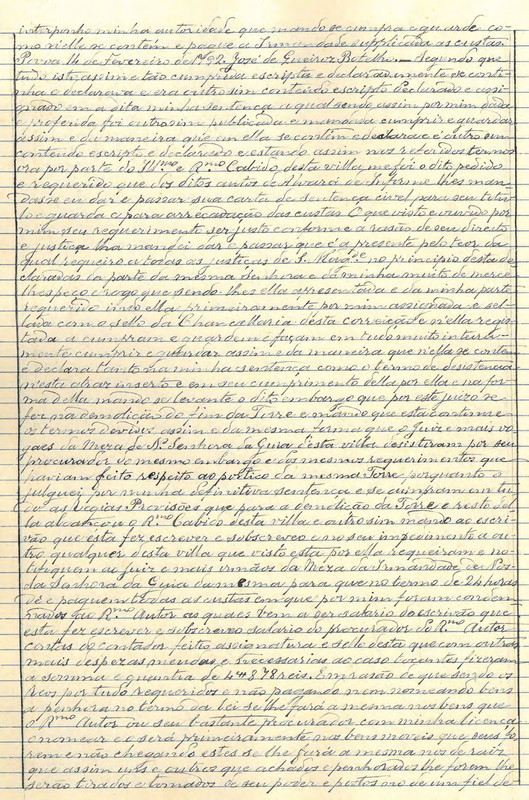 interponho minha autoridade que mando se cumpra e guarde co-
mo n'elle se contém e pague a Irmandade supplicada as custas.
Povoa 14 de Fevereiro de José de Queiroz Botelho. Segundo que
tudo isto assim e tão cumprida escripta e declaradamente se conti-
nha e declarava e era outro sim conteúdo escripto declarado e assi-
gnado em a dita minha sentença a qual sendo assim por mim dada
e proferida foi outro sim publicada e mandada cumprir e guardar
assim e da maneira que em ella se contém e declara e outro sim
conteúdo escripto e declarado e estando assim nos referidos termos
ora por parte do Ill.mo e R.mo Cabido desta villa me foi o dito pedido
e requerido que dos ditos autos de Alvará de Informe lhes man-
dasse eu dar e passar sua carta de sentença civel para seu titu-
lo e guarda e para arrecadação das custas. O que visto e ouvido por
mim seu requerimento ser justo conforme a rasão de seu direito
e justiça lha mandei dar e passar que é a presente pelo teor da
qual requeiro a todas as justiças de S. Mag.de no principio desta de-
claradas da parte da mesma Senhora e da minha muito de mercê
lhes peço e rogo que sendo-lhes ella apresentada e da minha parte
requerido indo ella primeiramente por mim assignada e sel-
lada com o sello da Chancellaria desta correição e n'ella regis-
tada a cumpram e guardem e façam em tudo muito inteira-
mente cumprir e guardar assim e da maneira que n'ella se contem
e declara tanto na minha sentença como o termo de desistencia
n'esta atraz inserto e em seu cumprimento della por ella e na for-
ma della mando se levante o dito embargo que por este juizo se
fez na demolição do fim da Torre e mando que esta continue n-
os termos devidos assim e da mesma forma que o Juiz e mais vo-
gaes da Meza de N.ª Senhora da Guia d'esta villa desistiram por seu
procurador do mesmo embargo e dos mesmos requerimentos que
haviam feito respeito ao portico da mesma Torre porquanto o
julguei por minha definitiva sentença e se cumpram em tu-
do as regias Provisões que para a demolição da Torre e resto del-
la alcançou o R.mo Cabido desta villa e outro sim mando ao escri-
vão que esta fez escrever e subscreveo e no seu impedimento a ou-
tro qualquer desta villa que visto esta por ella requeiram e no-
tifiquem ao Juiz e mais irmãos da Meza da Irmandade de Nos-
sa Senhora da Guia da mesma para que no termo de 24 horas
dê e paguem todas as custas em que por mim foram condem-
nados ao R.mo Autor as quaes vem a ser salario do escrivão que
esta fez escrever e subscreveo salario do procurador do R.mo Autor
contas do contador feitio assignatura e sello desta que com outras
mais despezas meudas e necessarias ao caso tocantes fizeram
a somma e quantia de 4$878 reis. Em rasão de que sendo os
Reos por tudo requeridos e não pagando nem nomeando bens
a penhora no termo da lei se lhe fará a mesma nos bens que
o R.mo Autor ou seu bastante procurador com minha licença
e nomear e o será primeiramente nos bens moveis que seus fo-
rem e não chegando estes se lhe fará a mesma nos de raiz
que assim uns e outros que achados e penhorados lhe forem lhe
serão tirados e tomados de seu poder e postos no de um fiel de-